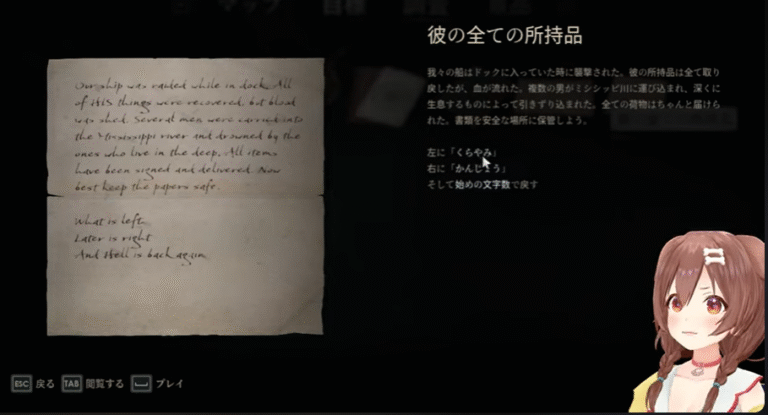 彼の全ての所持品
Our ship was raided while in dock. All
of His things were recovered, but blood
was shed. Several men were carried into
the Mississippi river and drowned by the
ones who live in the deep. All items
have been signed and delivered. Now
best keep the papers safe.
What is left,
Later is right
And Hell is back again
我々の船はドックに入っていた時に襲撃された。彼の所持品は全て取り
戻したが、血が流れた。複数の男がミシシッピ川に運び込まれ、深くに
生息するものによって引きずり込まれた。全ての荷物はちゃんと届けら
れた。書類を安全な場所に保管しよう。
左に「くらやみ」
右に「かんじょう」
そして始めの文字数で戻す
ESC 戻る TAB 閲覧する プレイ